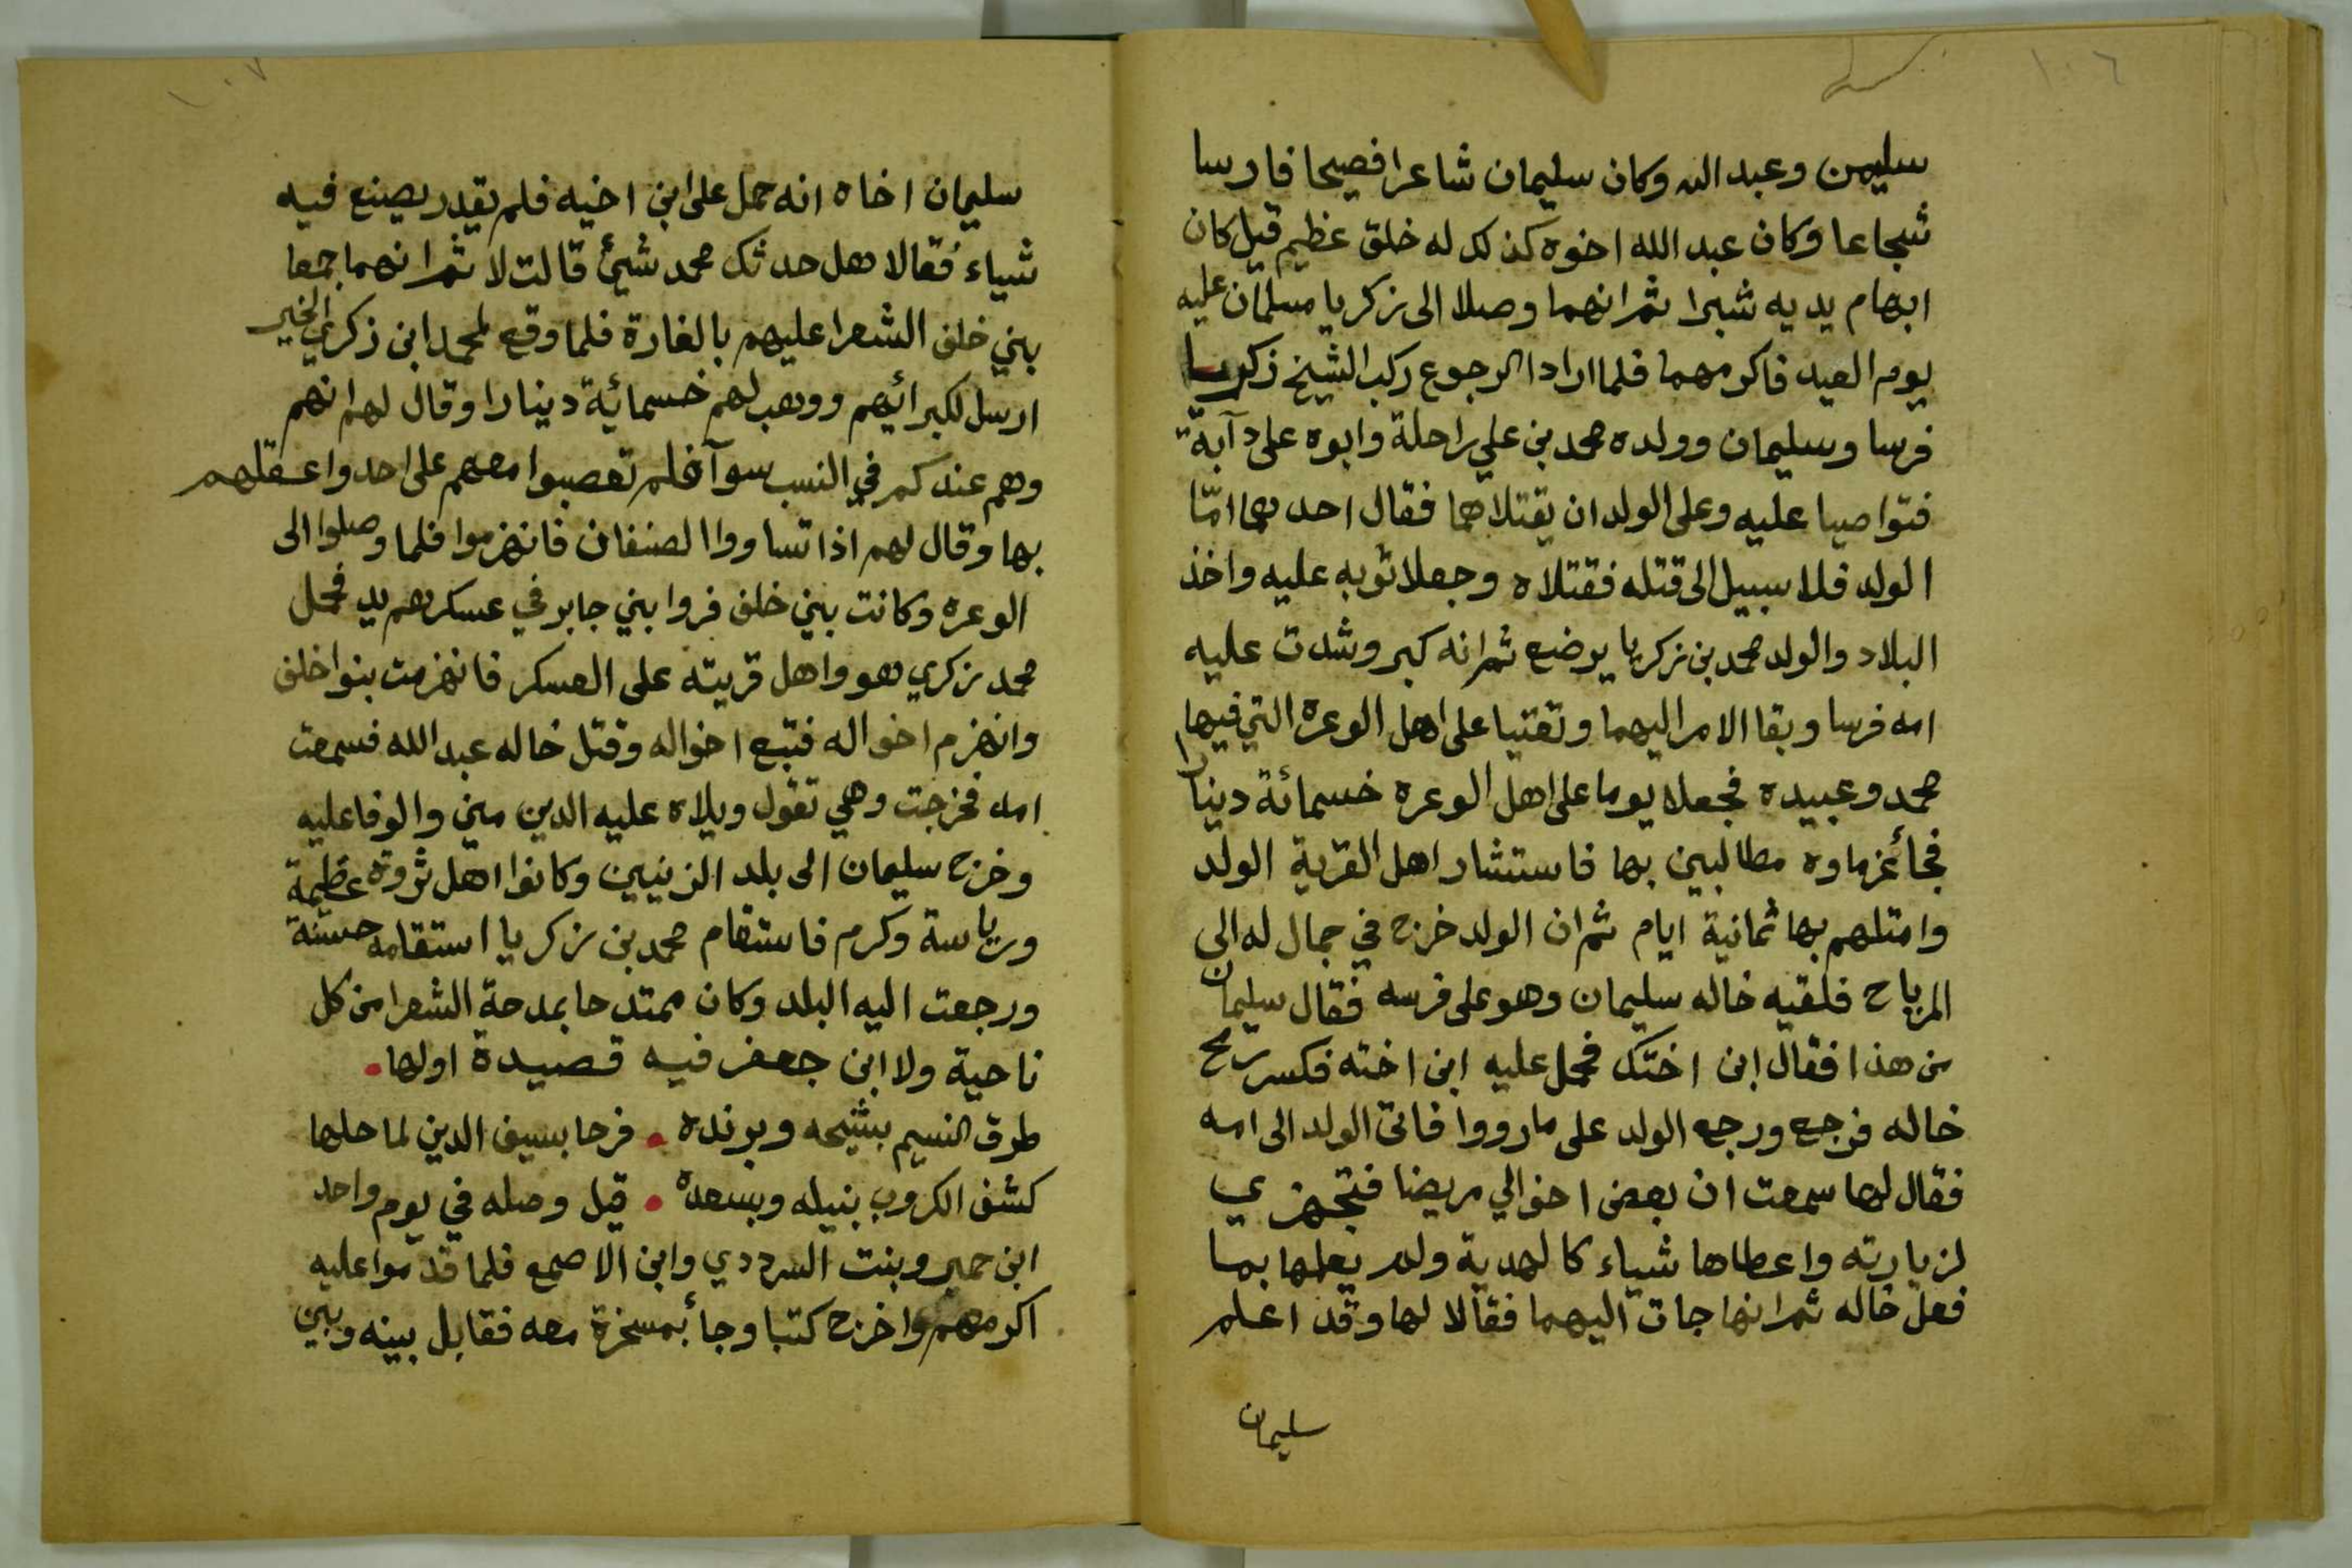 ١٠٦
سليمن وعبد الله وكان سليمان شاعرا فصيحا فارسا
شجاعا وكان عبد الله اخوه كذلك له خلق عظيم قيل كان
ابهام يديه شبرا ثم انهما وصلا الى زكريا مسلمان عليه
يوم العيد فاكرمهما فلما ارادا الرجوع ركب الشيخ زكريا
فرسا وسليمان وولده محمد بن علي راحلة وابوه على دآبة
فتواصيا عليه وعلى الولد ان يقتلاهما فقال احدهما امّا
الولد فلا سبيل الى قتله فقتلاه وجعلا ثوبه عليه واخذ
البلاد والولد محمد بن زكريا يرضع ثم انه كبر وشدت عليه
امه فرسا وبقا الامر اليهما وتعتيا على اهل الوعرة التي فيها
محمد وعبيده فجعلا يوما على اهل الوعره خسمائة دينارا
فجاءغزماوه مطالبين بها فاستشار اهل القرية الولد
وامتلهم بها ثمانية ايام ثم ان الولد خرج في جمال له الى
المرباح فلقيه خاله سليمان وهو على فرسه فقال سليمان
من هذا فقال ابن اختك فحمل عليه ابن اخته فكسر رمح
خاله فرجع ورجع الولد على مارووا فاتى الولد الى امه
فقال لها سمعت ان بعض اخوالي مريضا فتجهزي
لزيارته واعطاها شياء كالهدية ولم يعلمها بما
فعل خاله ثم انها جات اليهما فقالا لها وقد اعلم
سليمان
١٠٧
سليمان اخاه انه حمل على ابن اخيه فلم يقدر يصنع فيه
شياء فقالا هل حدثك محمد شيئ قالت لا ثم انهما جمعا
بني خلف الشعرا عليهم بالغارة فلما وقع لمحمد ابن زكري الخبر
ارسل لكبرائهم ووهب لهم خسمائة دينارا وقال لهم انهم
وهم عندكم في النسب سوآ فلم تعصبوا معهم على احد واعقلهم
بها وقال لهم اذا تساووا الصنفان فانهزموا فلما وصلوا الى
الوعره وكانت بني خلف فروا بني جابر في عسكرهم يد فحمل
محمد زكري هو واهل قريته على العسكر فانهزمت بنوا خلف
وانهزم اخواله فتبع اخواله وقتل خاله عبد الله فسمعت
امه فخرجت وهي تقول ويلاه عليه الدين مني والوفا عليه
وخرج سليمان الى بلد الزنيبين وكانوا اهل ثروة عظيمة
ورياسة وكرم فاستقام محمد بن زكريا استقامه حسنة
ورجعت اليه البلد وكان ممتدحا بمدحة الشعرا من كل
ناحية ولا ابن جعفر فيه قصيدة اولها
طرق النسيم بشيحه وبرنده فرحا بسيف الدين لما حلها
كشف الكروب بنيله وبسعده قيل وصله في يوم واحد
ابن حمير وبنت السرددي وابن الاصمع فلما قدموا عليه
اكرمهم واخرج كتبا وجأ بمسخرة معه فقابل بينه وبين